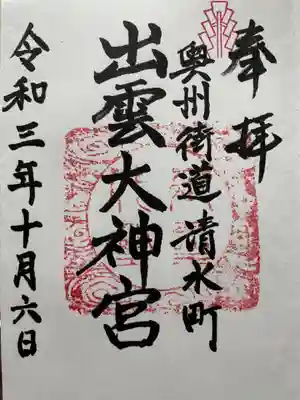 奉拝
奥州街道清水町
出雲大神宮
令和三年十月六日